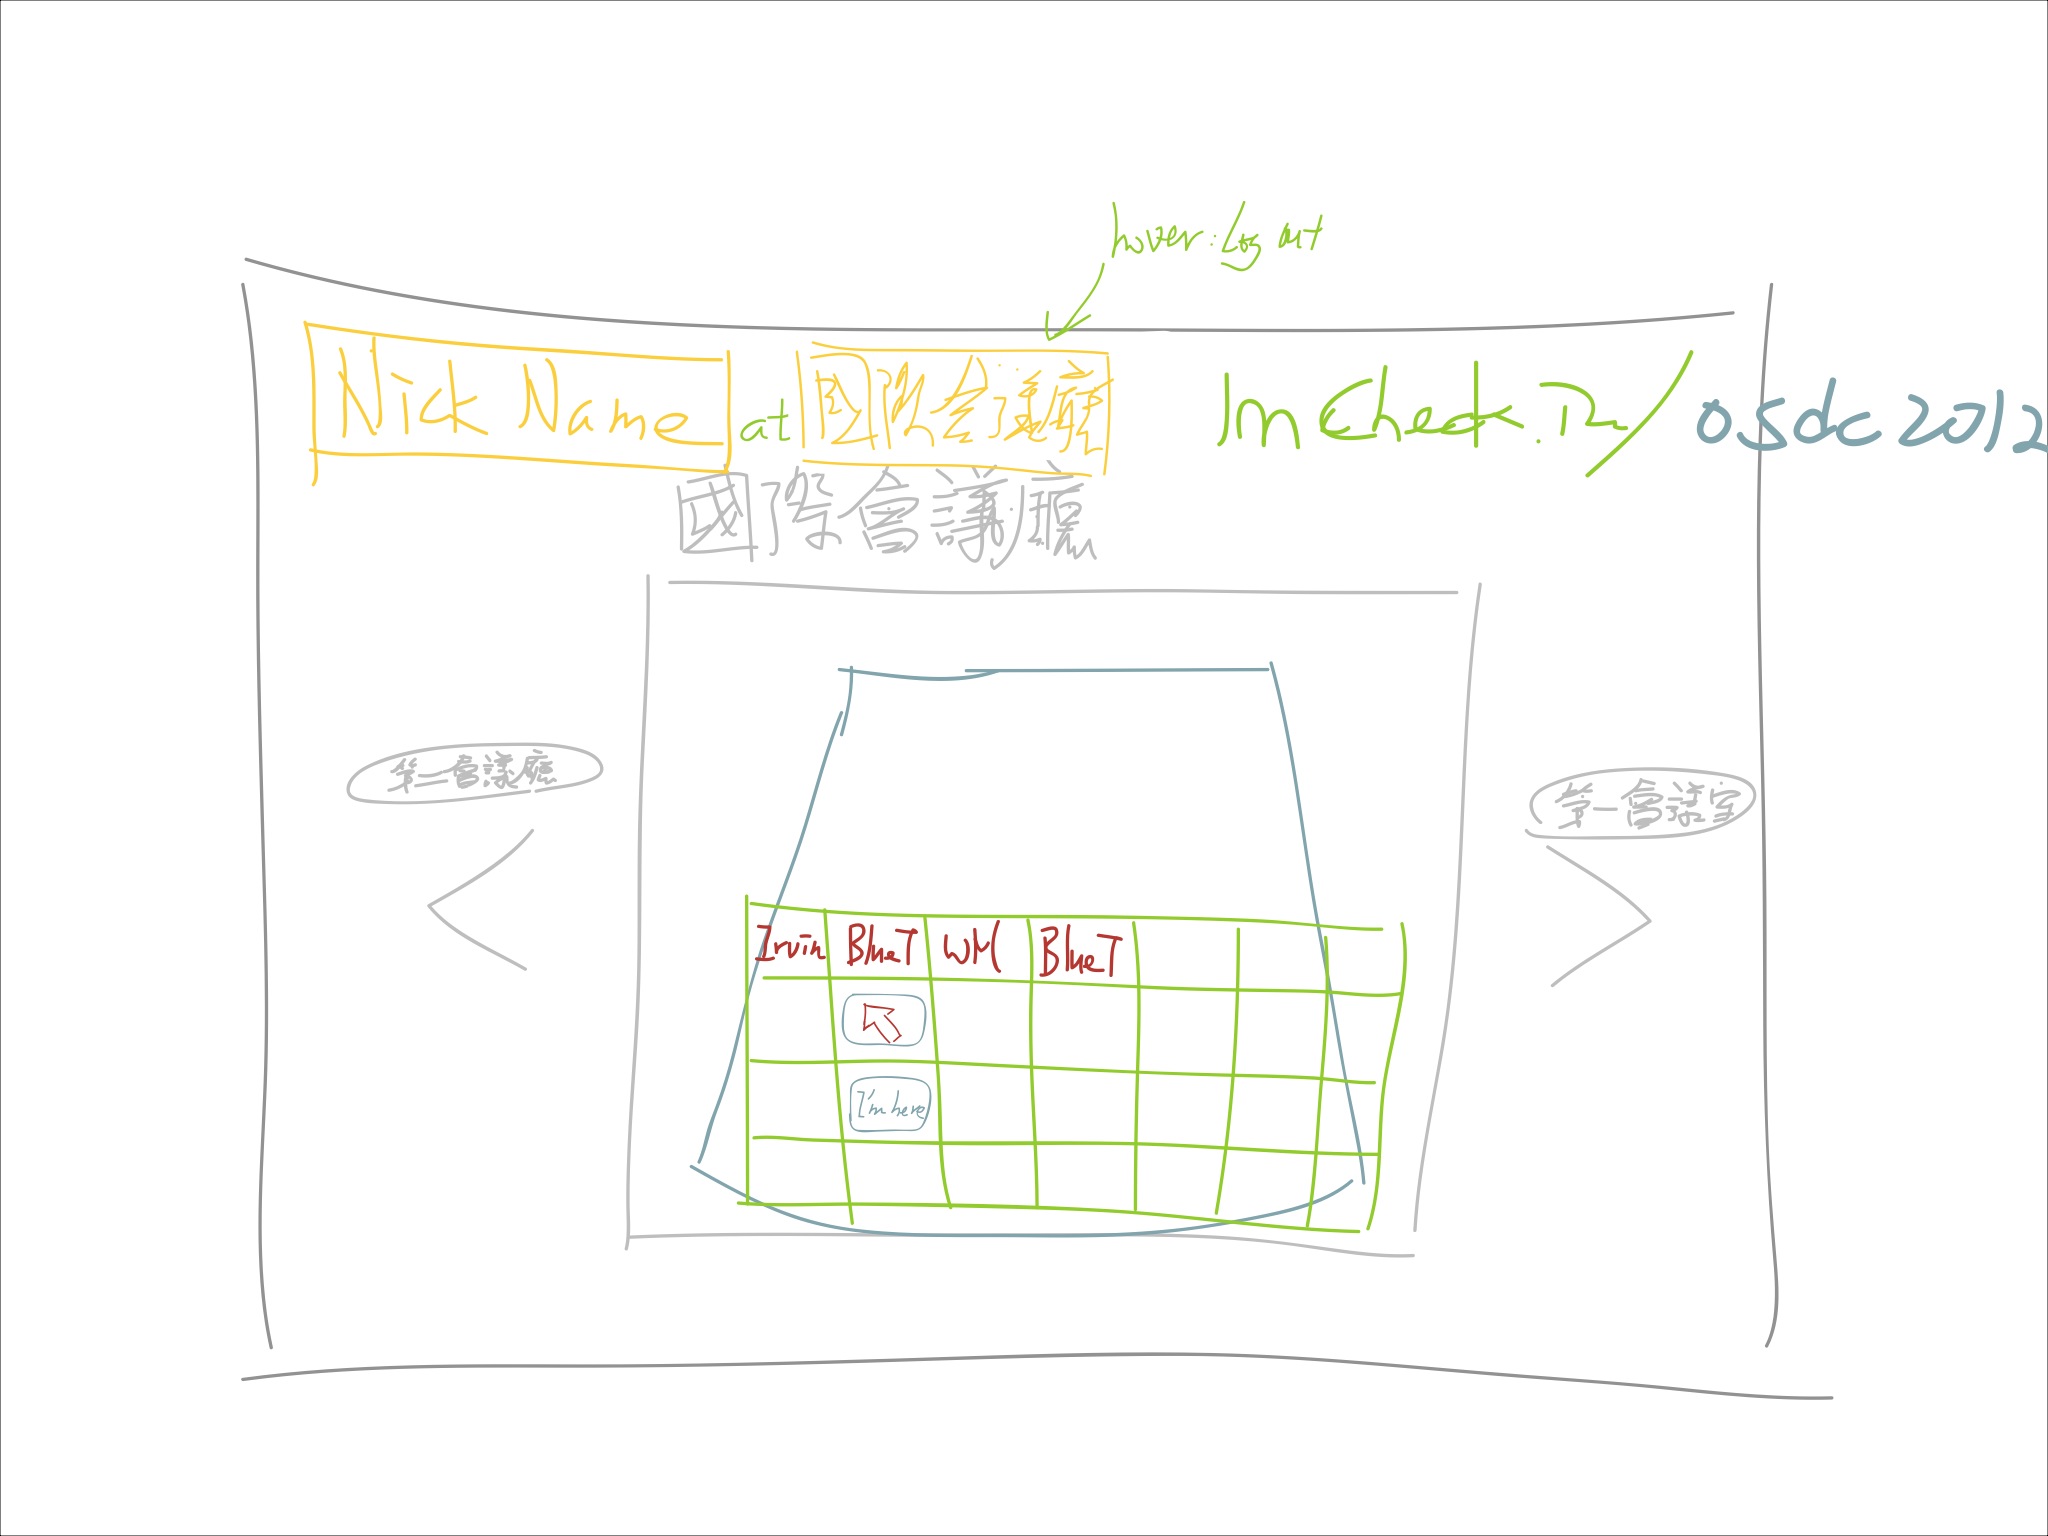 hover: Log out
Nick Name at 国际会议廳 ImCheck.In/ osdc2012
國際會議廳
第二會議廳
第一會議室
Irvin BlueT WM BlueT
I'm here